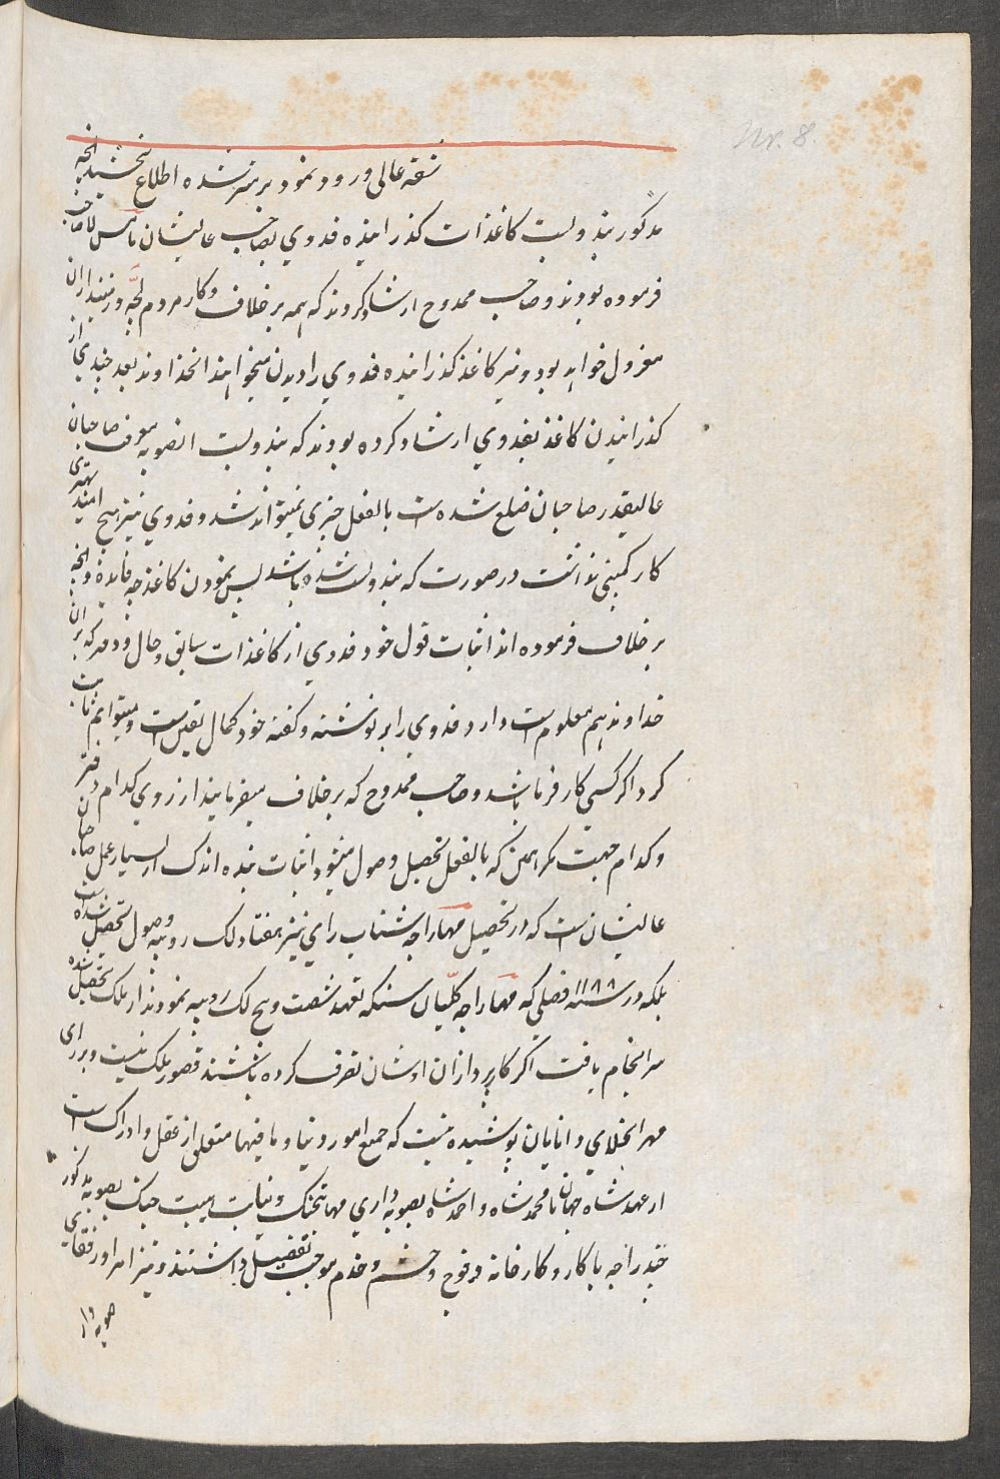 Nr. 8.
شقه عالی ورود نمود بر مندرجه شده اطلاع بخشید آنچه
مذکور بندوبست کاغذات گذرانیده فدوی بصاحب عالیشان تامس لا صاحب
فرموده بودند و صاحب ممدوح ارشاد کردند که همه برخلاف و کار مردم لچّه و زمینداران
معزول خواهد بود و نیز کاغذ گذرانیده فدوی را دیدن میخواهند خداوند بعد چندی از
گذرانیدن کاغذ بفدوی ارشاد کرده بودند که بندوبست آنصوبه معرفت صاحبان
عالیقدر صاحبان ضلع شده است بالفعل چیزی نمیتواند شد و فدوی نیز هیچ امید بهتری
کار کمپنی نداشت در صورت که بندوبست شده باشد پس نمودن کاغذ چه فائده و آنچه
برخلاف فرموده‌اند اثبات قول خود فدوی از کاغذات سابق و حال و دفتر که بران
خداوند هم معلوم است دارد فدوی را بر نوشته و گفته خود کمال یقین است و میتوانم ثابت
کرد اگر کسی کارفرما باشد و صاحب ممدوح که برخلاف میفرمایند از روی کدام دفتر
و کدام جهت مگر همین که بالفعل تحصیل وصول میشود اثبات بنده اندک از بسیار عمل صاحبان
عالیشان است که در تحصیل مهاراجه شتاب رای نیز هفتاد لک روپیه وصول تحصیل شده است
بلکه در سنه ۱۱۸۸ فصلی که مهاراجه کلّیان سنگه تعهد شصت و پنج لک روپیه نمودند از ملک تحصیل شده
سرانجام یافت اگر کارپردازان اوشان تصرف کرده باشند قصور ملک نیست و بر رای
مهر انجلای دانایان پوشیده نیست که جمیع امور دنیا و مافیها متعلق از عقل و ادراک است
از عهد شاه جهان تا محمد شاه و احمد شاه بصوبه داری مهابتجنگ و نیابت هیبت جنگ بصوبه مذکور
چند راجه با کار و کارخانه و فوج و حشم و خدم موجب تفصیل داشتند و نیز امرا و رفقای
صوبه دار